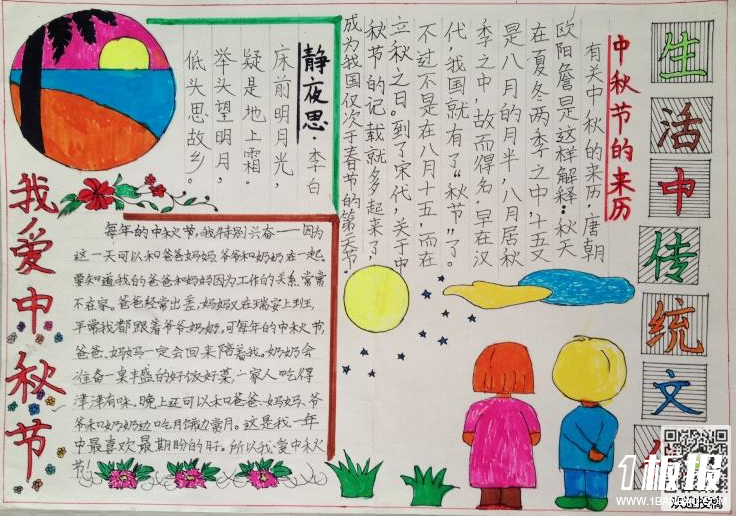 生活中传统文
中秋节的来历
有关中秋的来历,唐朝
欧阳詹是这样解释:秋天
在夏冬两季之中,十五又
是八月的月半,八月居秋
季之中,故而得名。早在汉
代,我国就有了“秋节”了。
不过不是在八月十五,而在
立秋之日。到了宋代,关于中
秋节的记载就多起来了,
成为我国仅次于春节的第二大节。
静夜思·李白
床前明月光,
疑是地上霜。
举头望明月,
低头思故乡。
我爱中秋节
每年的中秋节,我特别兴奋——因为
这一天可以和爸爸妈妈、爷爷和奶奶在一起。
要知道,我的爸爸和妈妈因为工作的关系,常常
不在家。爸爸经常出差,妈妈又在瑞安上班,
平常我都跟着爷爷奶奶。可每年的中秋节,
爸爸、妈妈一定会回来陪着我。奶奶会
准备一桌丰盛的好饭好菜,一家人吃得
津津有味。晚上还可以和爸爸、妈妈、爷
爷和奶奶边吃月饼边赏月。这是我一年
中最喜欢最期盼的时。所以我爱中秋
节!
1板报
WWW.1BANBAO.COM
欢迎投稿